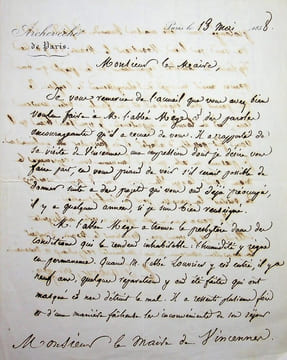 Archevêché
de Paris.
Paris le 13 Mai 1858.
Monsieur le Maire,
Je vous remercie de l'accueil que vous avez bien
voulu faire à M. l'abbé et de parole
encourageante qu'il a reçue de vous. Il a rapporté de
sa visite à Vincennes une dont je désire vous
faire part, en vous priant de voir s'il serait possible de
donner suite à des projets qui vous ont déjà préoccupé,
il y a quelques années si je suis bien renseigné.
M. l'abbé a trouvé le presbytère dans des
conditions qui le rendent inhabitable : l'humidité y règne
en permanence. Quand M. l'abbé y est entré, il y a
neuf ans, quelques réparations y ont été faites qui ont
masqué et non détruit le mal. Il a ressenti plusieurs fois
et d'une manière fâcheuse les inconvénients de son séjour
Monsieur le Maire de Vincennes